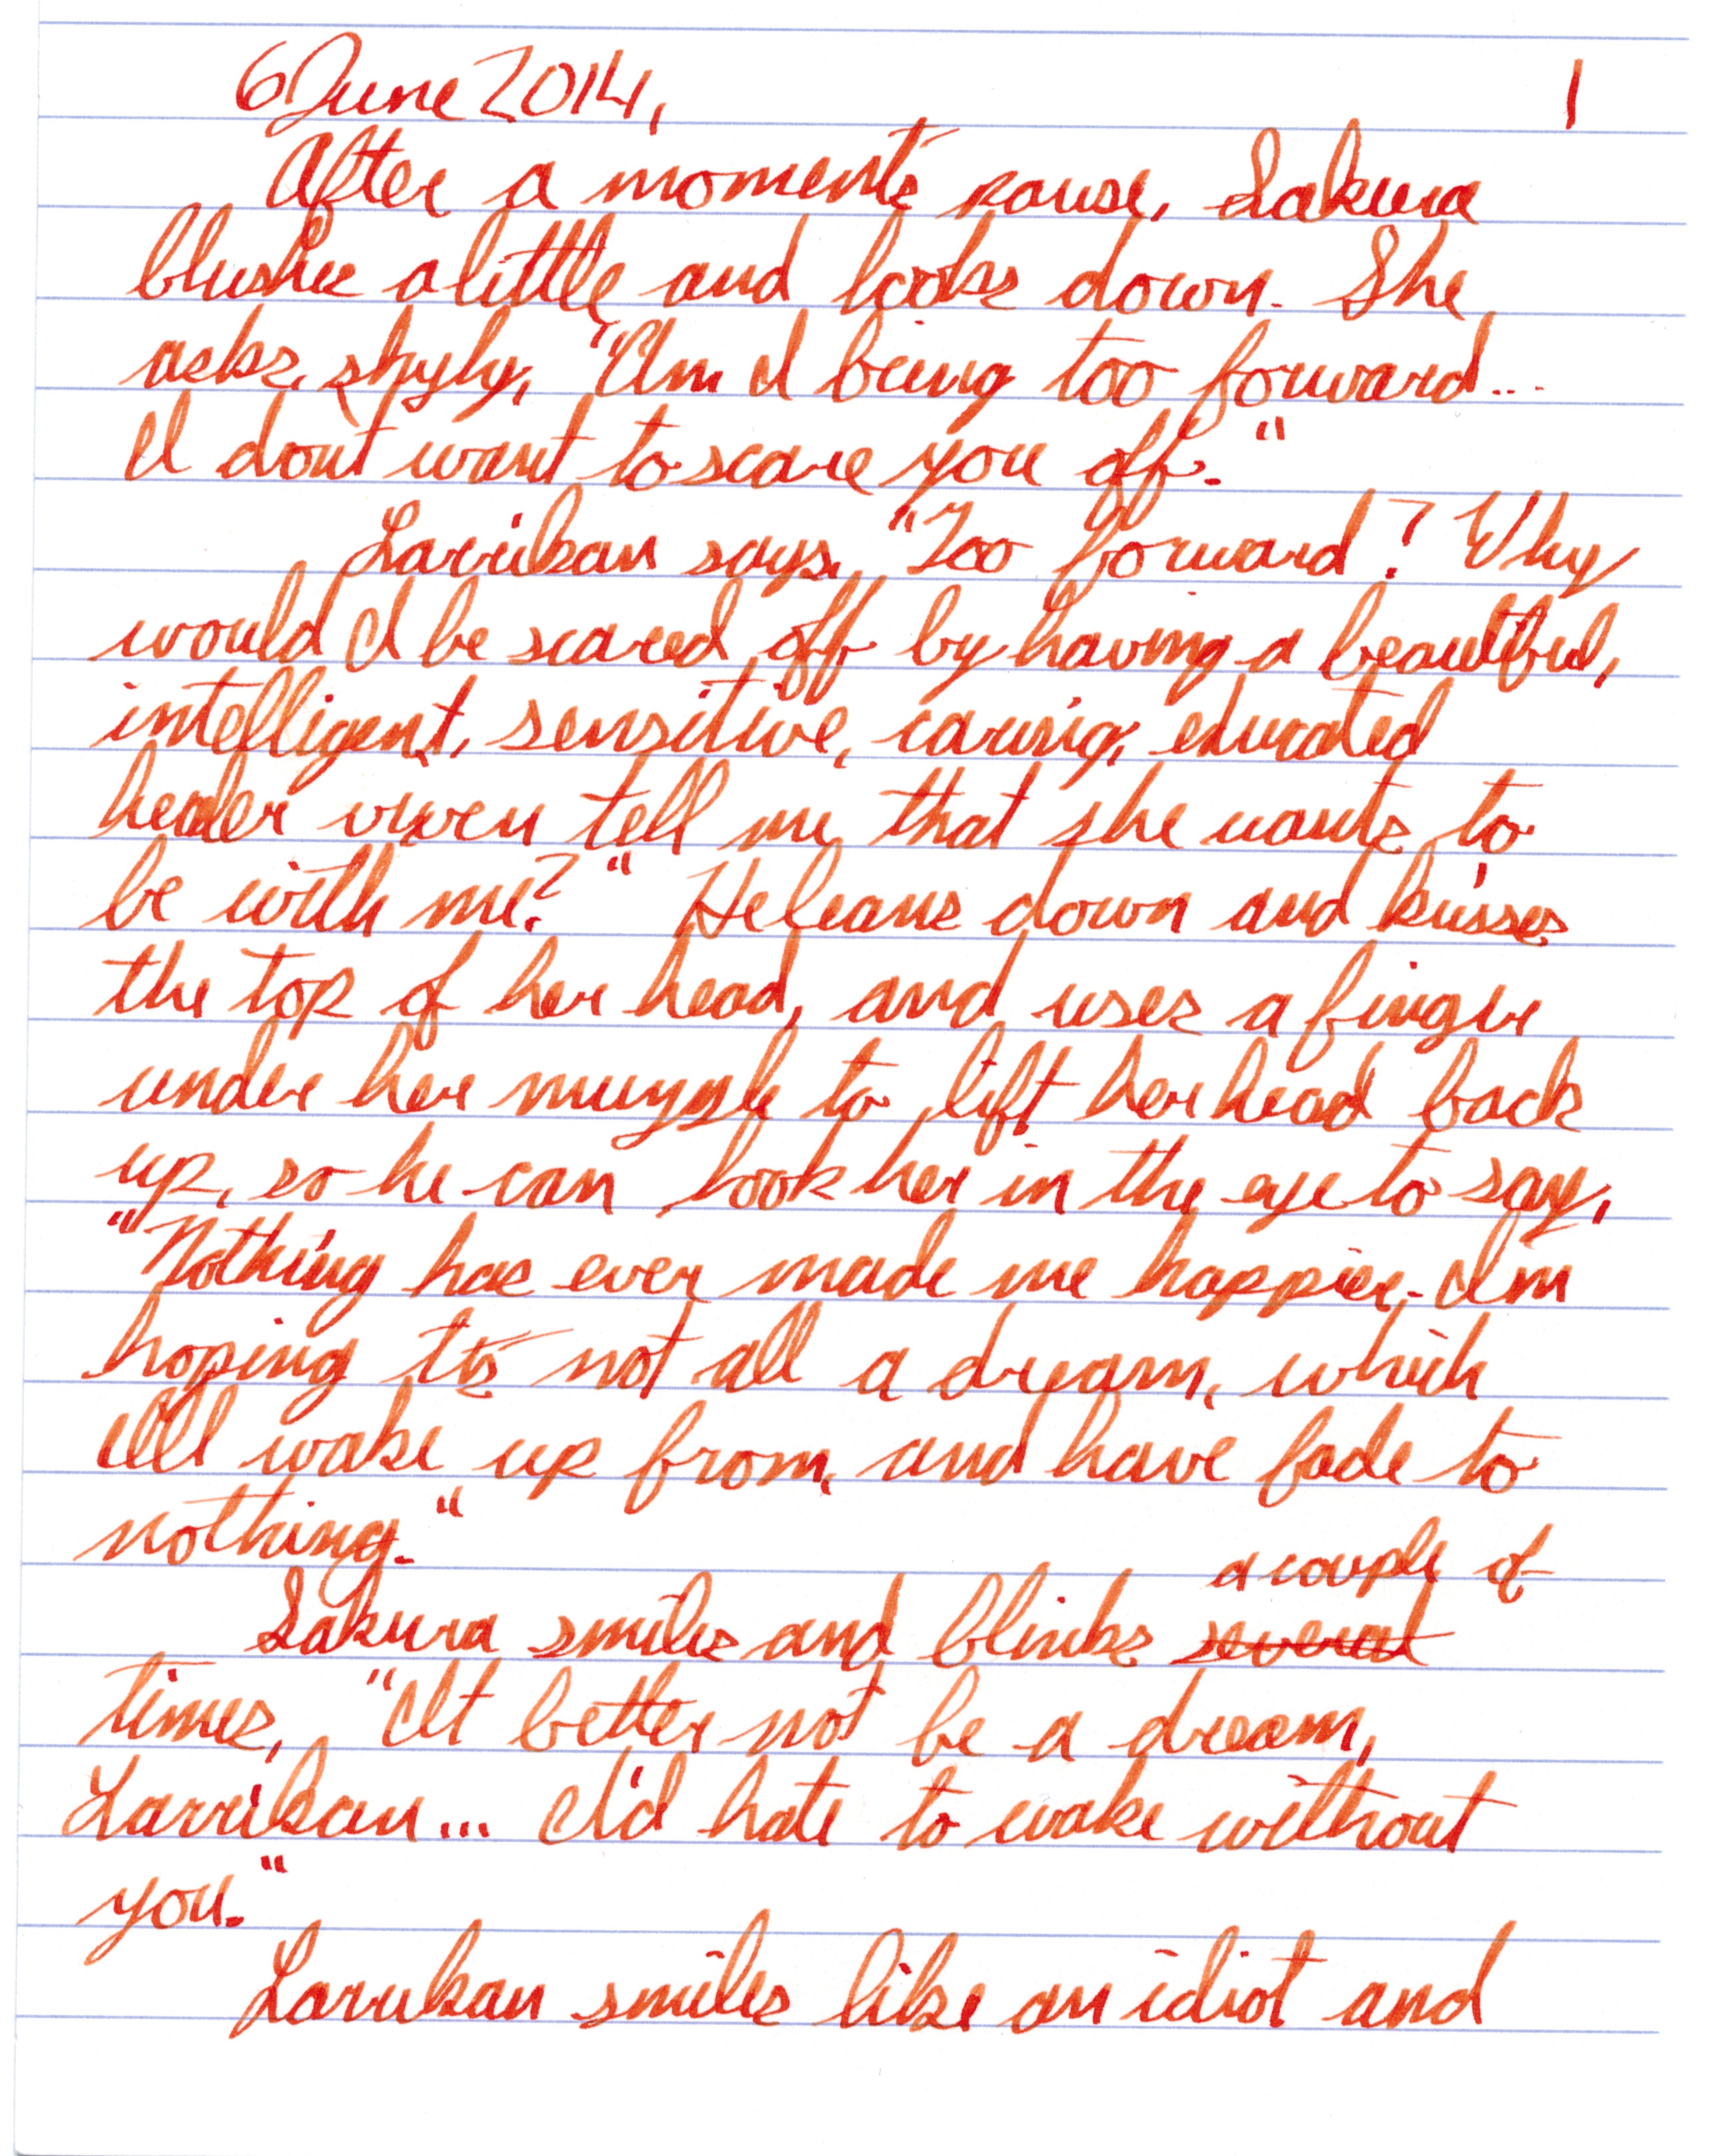 6 June 2014, 1
After a moment's pause, Sakura
blushes a little and looks down. She
asks, shyly, "Am I being too forward...
I don't want to scare you off."
Larrikan says, "Too forward? Why
would I be scared off by having a beautiful,
intelligent, sensitive, caring, educated
healer vixen tell me that she wants to
be with me?" He leans down and kisses
the top of her head, and uses a finger
under her muzzle to lift her head back
up, so he can look her in the eye to say,
"Nothing has ever made me happier. I'm
hoping it's not all a dream, which
I'll wake up from, and have fade to
nothing."
a couple of
Sakura smiles and blinks several
times, "It better not be a dream,
Larrikan... I'd hate to wake without
you."
Larrikan smiles like an idiot and